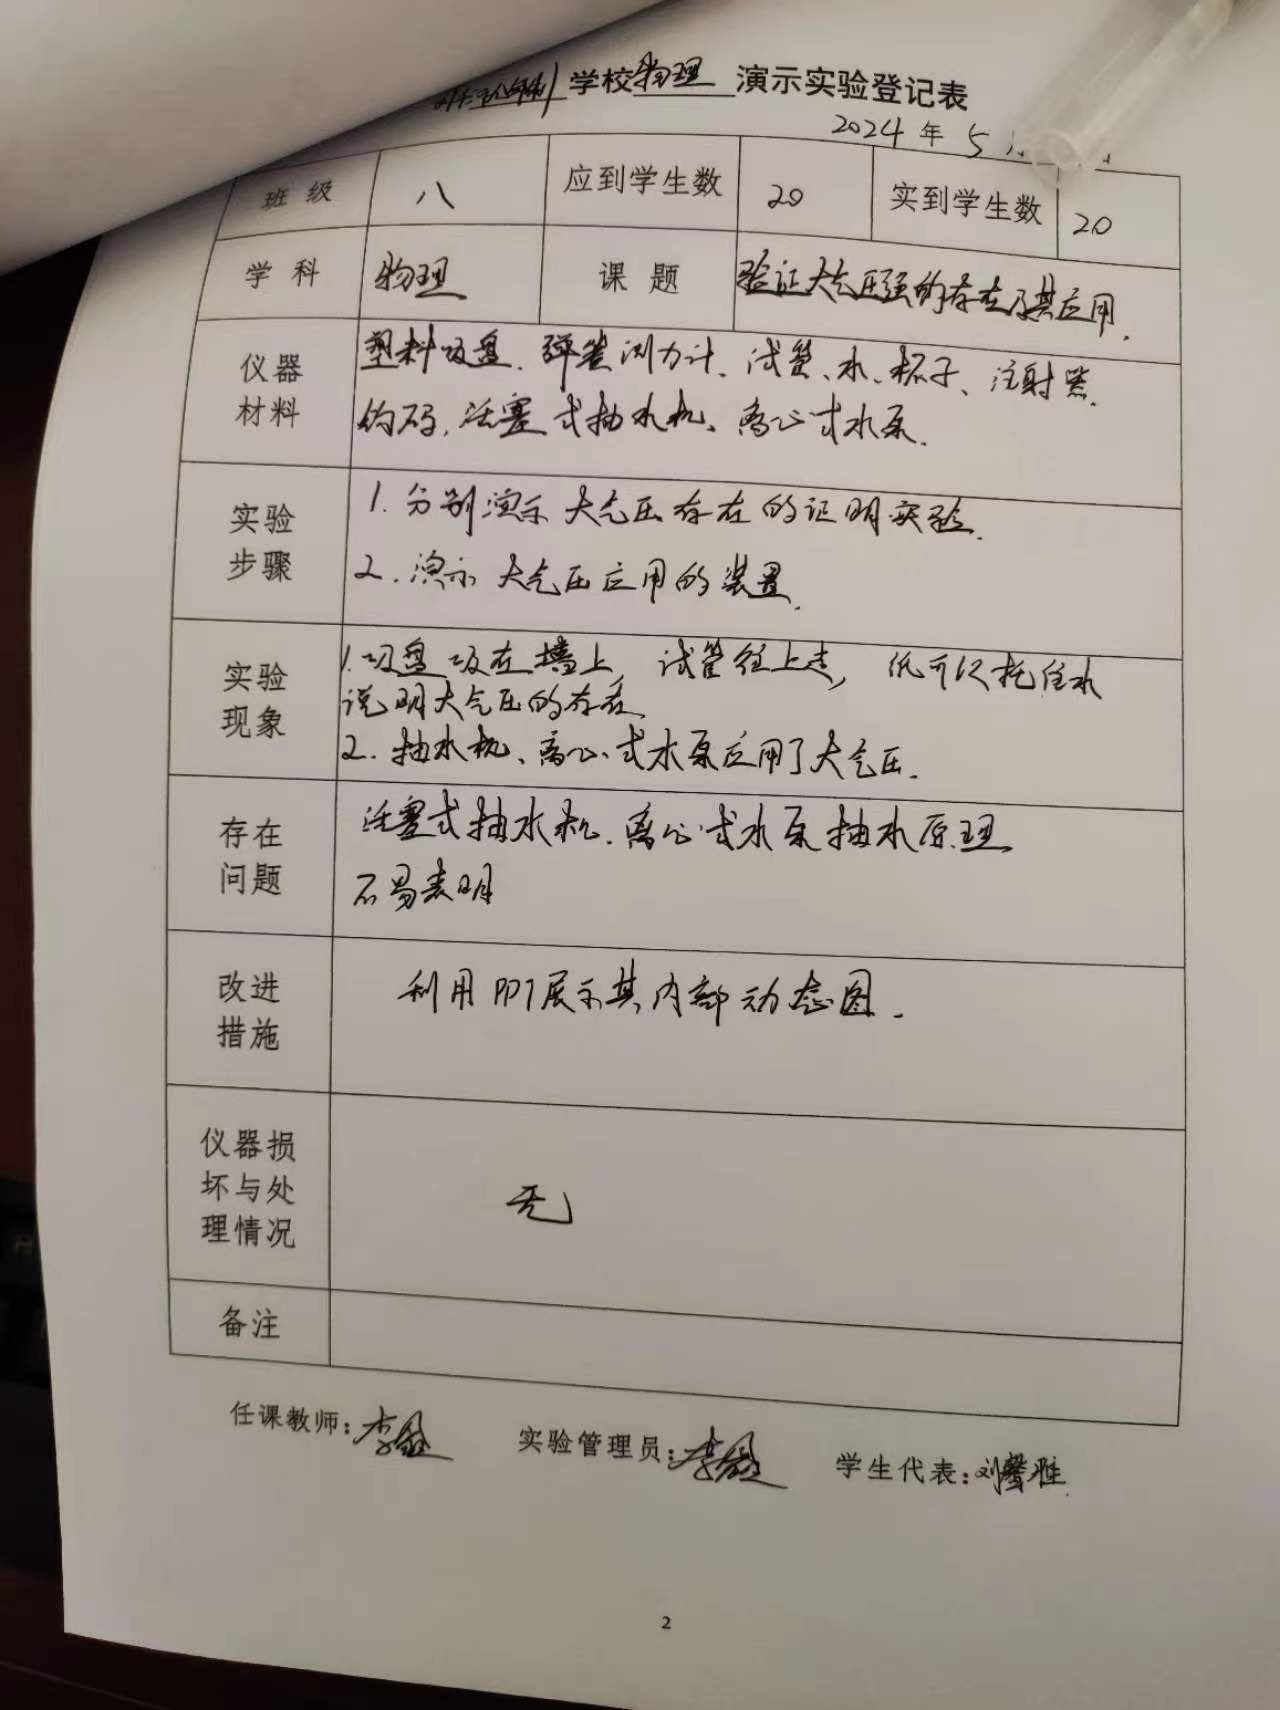 学校物理 演示实验登记表
2024年5
班级 八 应到学生数 20 实到学生数 20
学科 物理 课题 验证大气压强的存在及其应用.
仪器材料 塑料吸盘、弹簧测力计、试管、水、杯子、注射器、
钩码、活塞式抽水机、离心式水泵.
实验步骤 1.分别演示大气压存在的证明实验.
2.演示大气压应用的装置.
实验现象 1.吸盘吸在墙上, 试管往上走, 纸可以托住水
说明大气压的存在
2.抽水机、离心式水泵应用了大气压.
存在问题 活塞式抽水机、离心式水泵抽水原理
不易表明
改进措施 利用PPT展示其内部动态图.
仪器损坏与处理情况 无
备注
任课教师:李 实验管理员:李 学生代表:刘馨雅
2